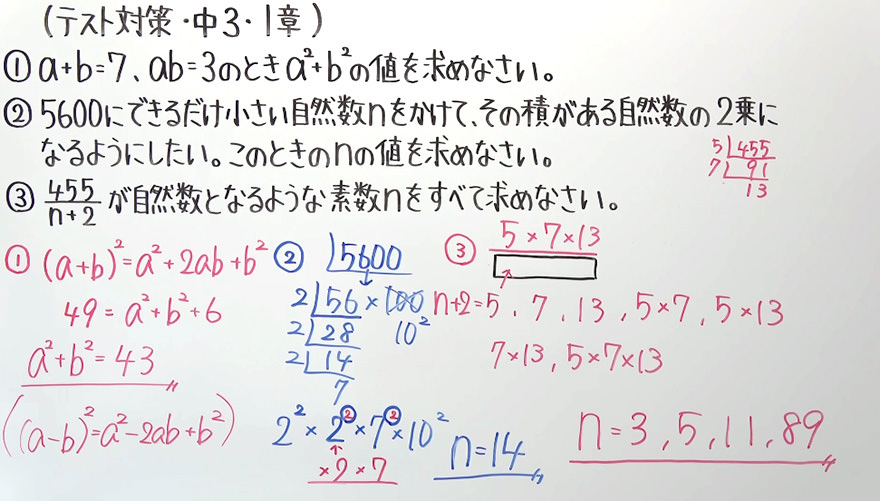 (テスト対策・中3・1章)
① a+b=7、ab=3のときa²+b²の値を求めなさい。
② 5600にできるだけ小さい自然数nをかけて、その積がある自然数の2乗に
なるようにしたい。このときのnの値を求めなさい。
5 455
7 91
13
③ 455/n+2 が自然数となるような素数nをすべて求めなさい。
① (a+b)²=a²+2ab+b²
49=a²+b²+6
a²+b²=43
((a-b)²=a²-2ab+b²)
② 5600
2 56×100
2 28 10²
2 14
7
2²×2②×7②×10²
×2×7
n=14
③ 5×7×13
n+2=5、7、13、5×7、5×13
7×13、5×7×13
n=3,5,11,89